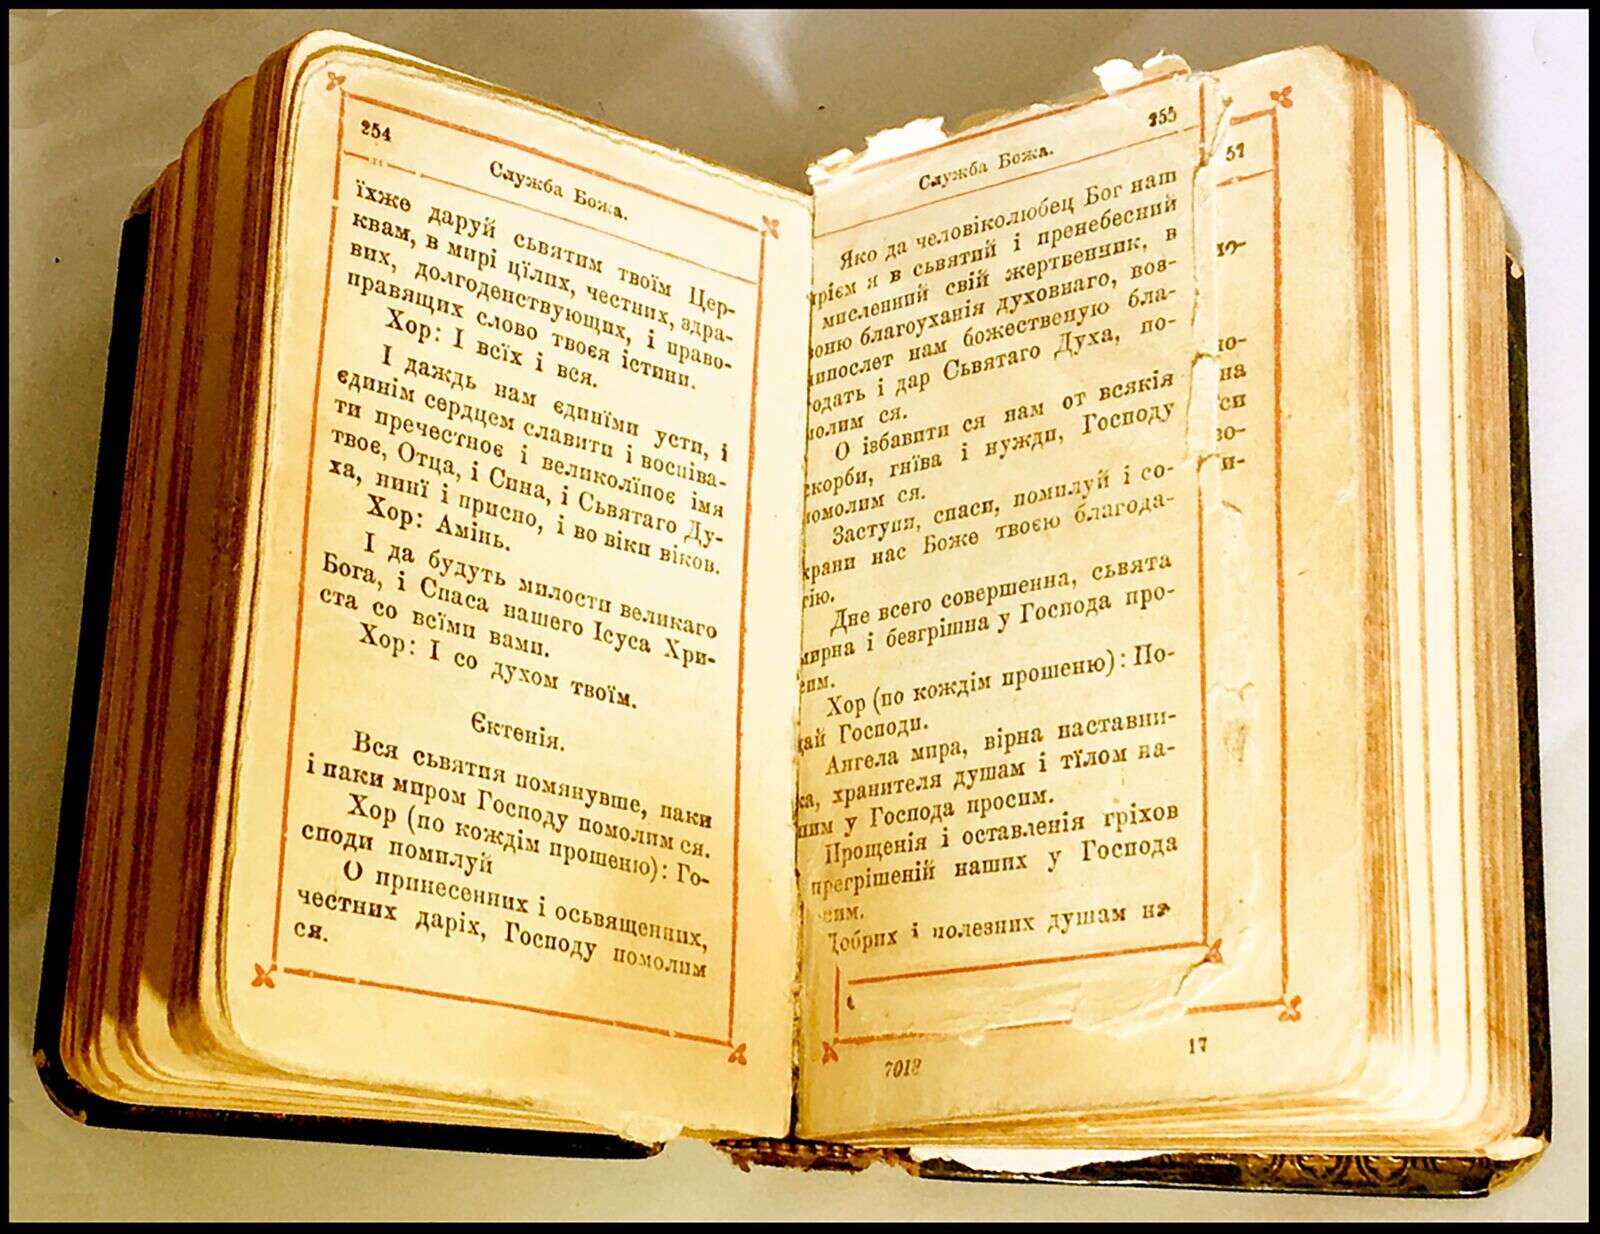 254
Служба Божа.
їхже даруй сьвятим твоїм Цер-
квам, в мирі цїлих, честних, здра-
вих, долгоденствующих, і право-
правящих слово твоєя істини.
Хор: І всїх і вся.
І даждь нам єдинїми усти, і
єдинім сердцем славити і воспіва-
ти пречестноє і великолїпоє імя
твоє, Отца, і Сина, і Сьвятаго Ду-
ха, нинї і присно, і во віки віков.
Хор: Амінь.
І да будуть милости великаго
Бога, і Спаса нашего Ісуса Хри-
ста со всїми вами.
Хор: І со духом твоїм.
Єктенія.
Вся сьвятия помянувше, паки
і паки миром Господу помолим ся.
Хор (по кождім прошеню): Го-
споди помилуй
О принесенних і осьвященних,
честних даріх, Господу помолим
ся.
255
Служба Божа.
Яко да человіколюбец Бог наш
я в сьвятий і пренебесний
мисленний свій жертвенник, в
благоуханія духовнаго, воз-
нам божественую бла-
і дар Сьвятаго Духа, по-
ся.
О ізбавити ся нам от всякія
гнїва і нужди, Господу
ся.
Заступи, спаси, помилуй і со-
нас Боже твоєю благода-

Дне всего совершенна, сьвята
і безгрішна у Господа про-

Хор (по кождім прошеню): По-
Господи.
Ангела мира, вірна наставни-
хранителя душам і тїлом на-
у Господа просим.
Прощенія і оставленія гріхов
прегрішеній наших у Господа

Добрих і полезних душам на-
7018
17
57
на